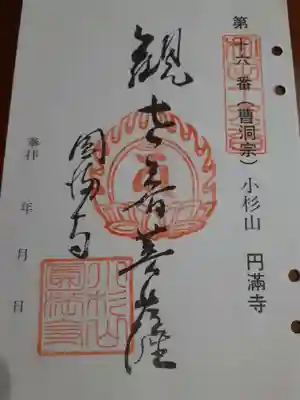 第十六番(曹洞宗)小杉山 円満寺
観世音菩薩
圓満寺
奉拝 年 月 日
小杉山
圓満寺